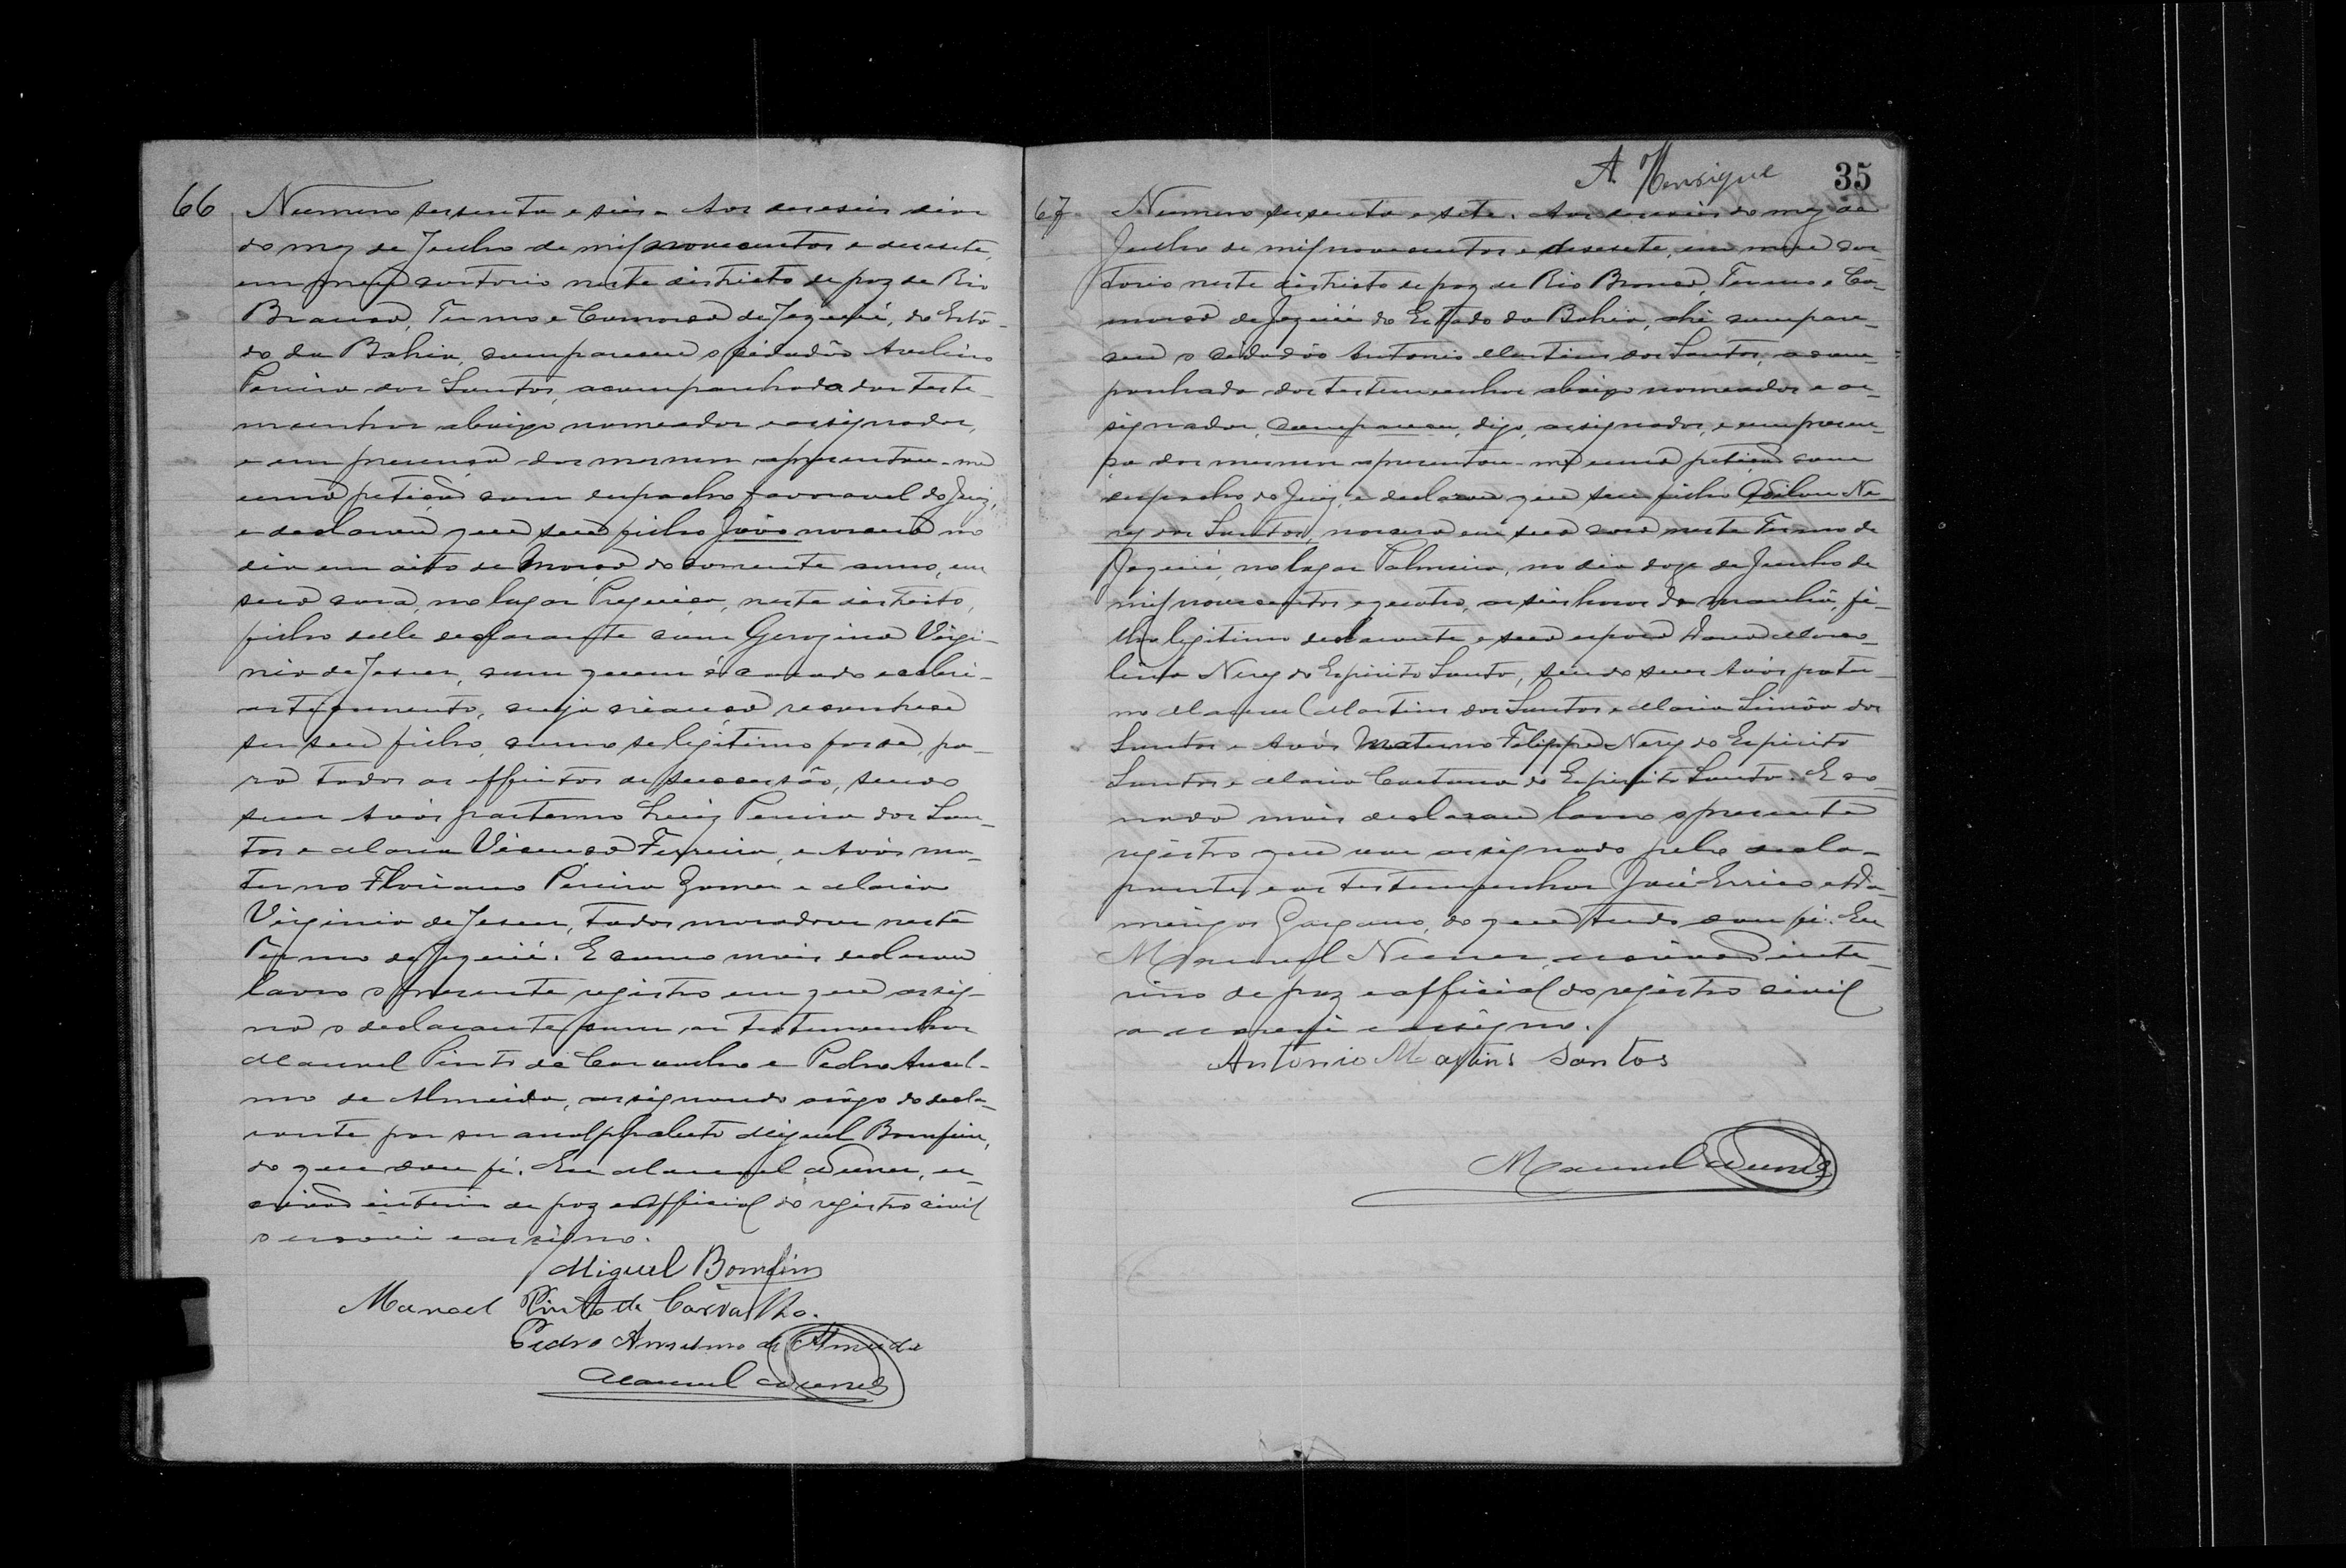 66 Numero sessenta e seis. Aos deseseis dias
do mez de Julho de mil novecentos e desesete,
em meu cartorio neste districto de paz de Rio
Branco, Termo e Comarca de Jequié, do Esta-
do da Bahia, compareceu o cidadão Avelino
Pereira dos Santos, acompanhado das teste-
munhas abaixo nomeadas e assignadas,
e em presença das mesmas apresentou-me
uma petição com despacho favoravel do Juiz,
e declarou que seu filho João nasceu no
dia em oito de Março do corrente anno, em
sua casa, no lugar Preguiça, neste districto,
filho delle declarante com Gerogina Virgi-
nia de Jesus, com quem é casado eccleci-
asticamente, cuja creança reconhece
ser seu filho, como se legitimo fosse, pa-
ra todos os effeitos de successão, sendo
seus Avós paterno Luiz Pereira dos San-
tos e Maria Vicencia Ferreira, e Avós ma-
terno Floriano Pereira Gomes e Maria
Virginia de Jesus, todos moradores neste
Termo de Jequié. E como mais declarou
lavro o presente registro em que assig-
na o declarante com as testemunhas
Manuel Pinto de Carvalho e Pedro Ansel-
mo de Almeida, assignando a rôgo do decla-
rante por ser analphabeto Miguel Bomfim,
do que dou fé. Eu Manuel Nunes, es-
crivão interino de paz e official do registro civil
o escrevi e assigno.
Miguel Bomfim
Manoel Pinto de Carvalho.
Pedro Anselmo de Almeida
Manuel Nunes
A. Henrique 35
67 Numero sessenta e sete. Aos deseseis do mez de
Julho de mil novecentos e desesete, em meu car-
torio neste districto de paz de Rio Branco, Termo e Co-
marca de Jequié do Estado da Bahia, ahi compare-
ceu o cidadão Antonio Martins dos Santos, acom-
panhado das testemunhas abaixo nomeadas e as-
signadas, compareceu, digo, assignadas, e em presen-
ça das mesmas apresentou-me uma petição com
despacho do Juiz, e declarou que seu filho Odilon Ne-
ry dos Santos, nasceu em sua casa neste Termo de
Jequié, no lugar Palmeira, no dia doze de Junho de
mil novecentos e quatro, as seis horas da manhã, fi-
lho legitimo declarante e sua esposa Dona Marco-
lina Nery do Espirito Santo, sendo seus Avós pater-
no Manuel Martins dos Santos e Maria Simôa dos
Santos e Avós Materno Felippe Nery do Espirito
Santos e Maria Caetana do Espirito Santo. E co-
nada mais declarou lavro o presente
registro que vae assignado pelo decla-
rante e as testemunhas José Errico e Do-
mingos Gargano, do que tudo dou fé. Eu
Manuel Nunes, escrivão inte-
rino de paz e official do registro civil
o escrevi e assigno.
Antonio Martins Santos
Manuel Nunes